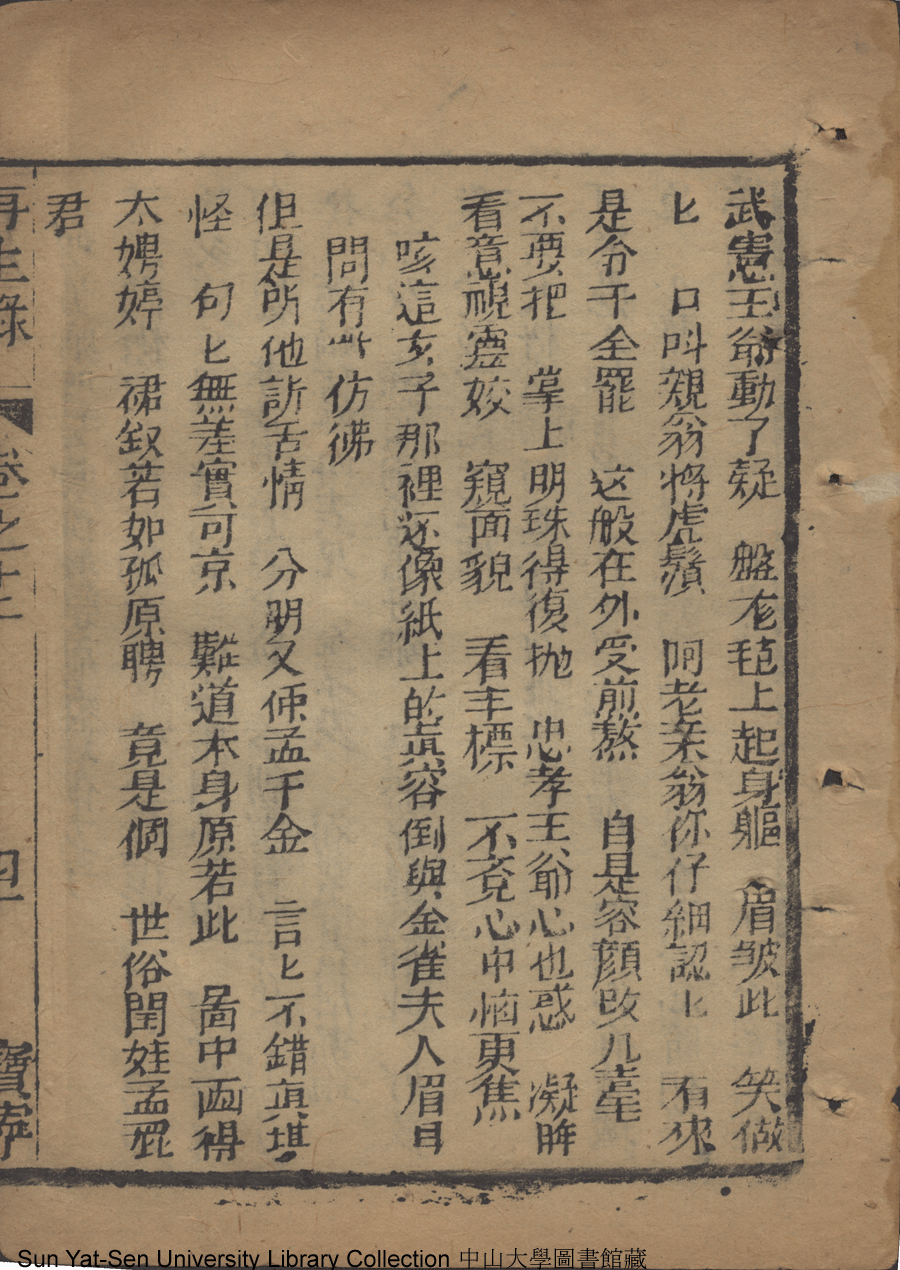 武憲王爺動了疑　盤龙毡上起身軀　眉皱此　笑做
匕　口叫親翁将虎鬚　阿老亲翁你仔細認匕　有來
是令千金罷　这般在外受煎熬　自是容顔改几毫
不要把　掌上明珠得復抛　忠孝王爺心也惑　凝眸
看意視雲姣　窺面貌　看丰標　不竟心中惱更焦
咳這女子那裡还像紙上的真容倒與金雀夫人眉目
問有些仿彿
但是听他訴舌情　分明又係孟千金　言匕不錯真堪
怪　句匕無差實可京　難道本身原若此　啚中画得
太娉婷　裙釵若如孤原聘　竟是個　世俗閨娃孟麗
君
再生緣　卷之十二　四　寳寧
Sun Yat-Sen University Library Collection 中山大學圖書館藏